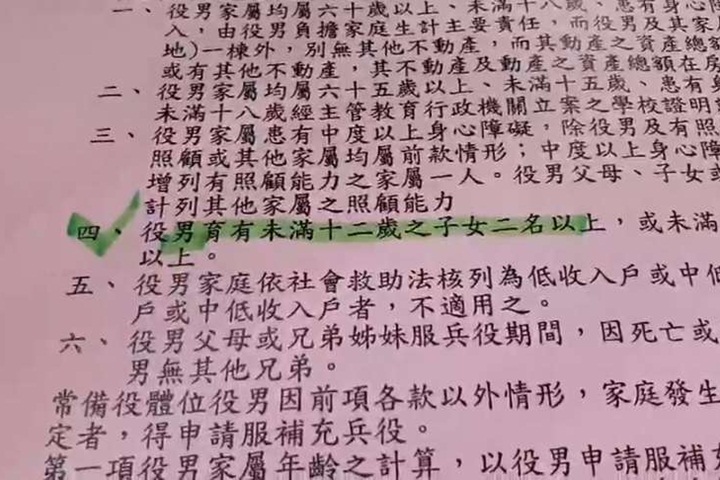 一、役男家屬均屬六十歲以上、未滿十八歲、患有身心障
入，由役男負擔家庭生計主要責任，而役男及其家屬
地)一棟外，別無其他不動產，而其動產之資產總額
或有其他不動產，其不動產及動產之資產總額在房
二、役男家屬均屬六十五歲以上、未滿十五歲、患有身
未滿十八歲經主管教育行政機關立案之學校證明
三、役男家屬患有中度以上身心障礙，除役男及有照
照顧或其他家屬均屬前款情形；中度以上身心障
增列有照顧能力之家屬一人。役男父母、子女或
計列其他家屬之照顧能力
四、役男育有未滿十二歲之子女二名以上，或未滿
以上。
五、役男家庭依社會救助法核列為低收入戶或中低
戶或中低收入戶者，不適用之。
六、役男父母或兄弟姊妹服兵役期間，因死亡或
男無其他兄弟。
常備役體位役男因前項各款以外情形，家庭發生
定者，得申請服補充兵役。
第一項役男家屬年齡之計算，以役男申請服補充